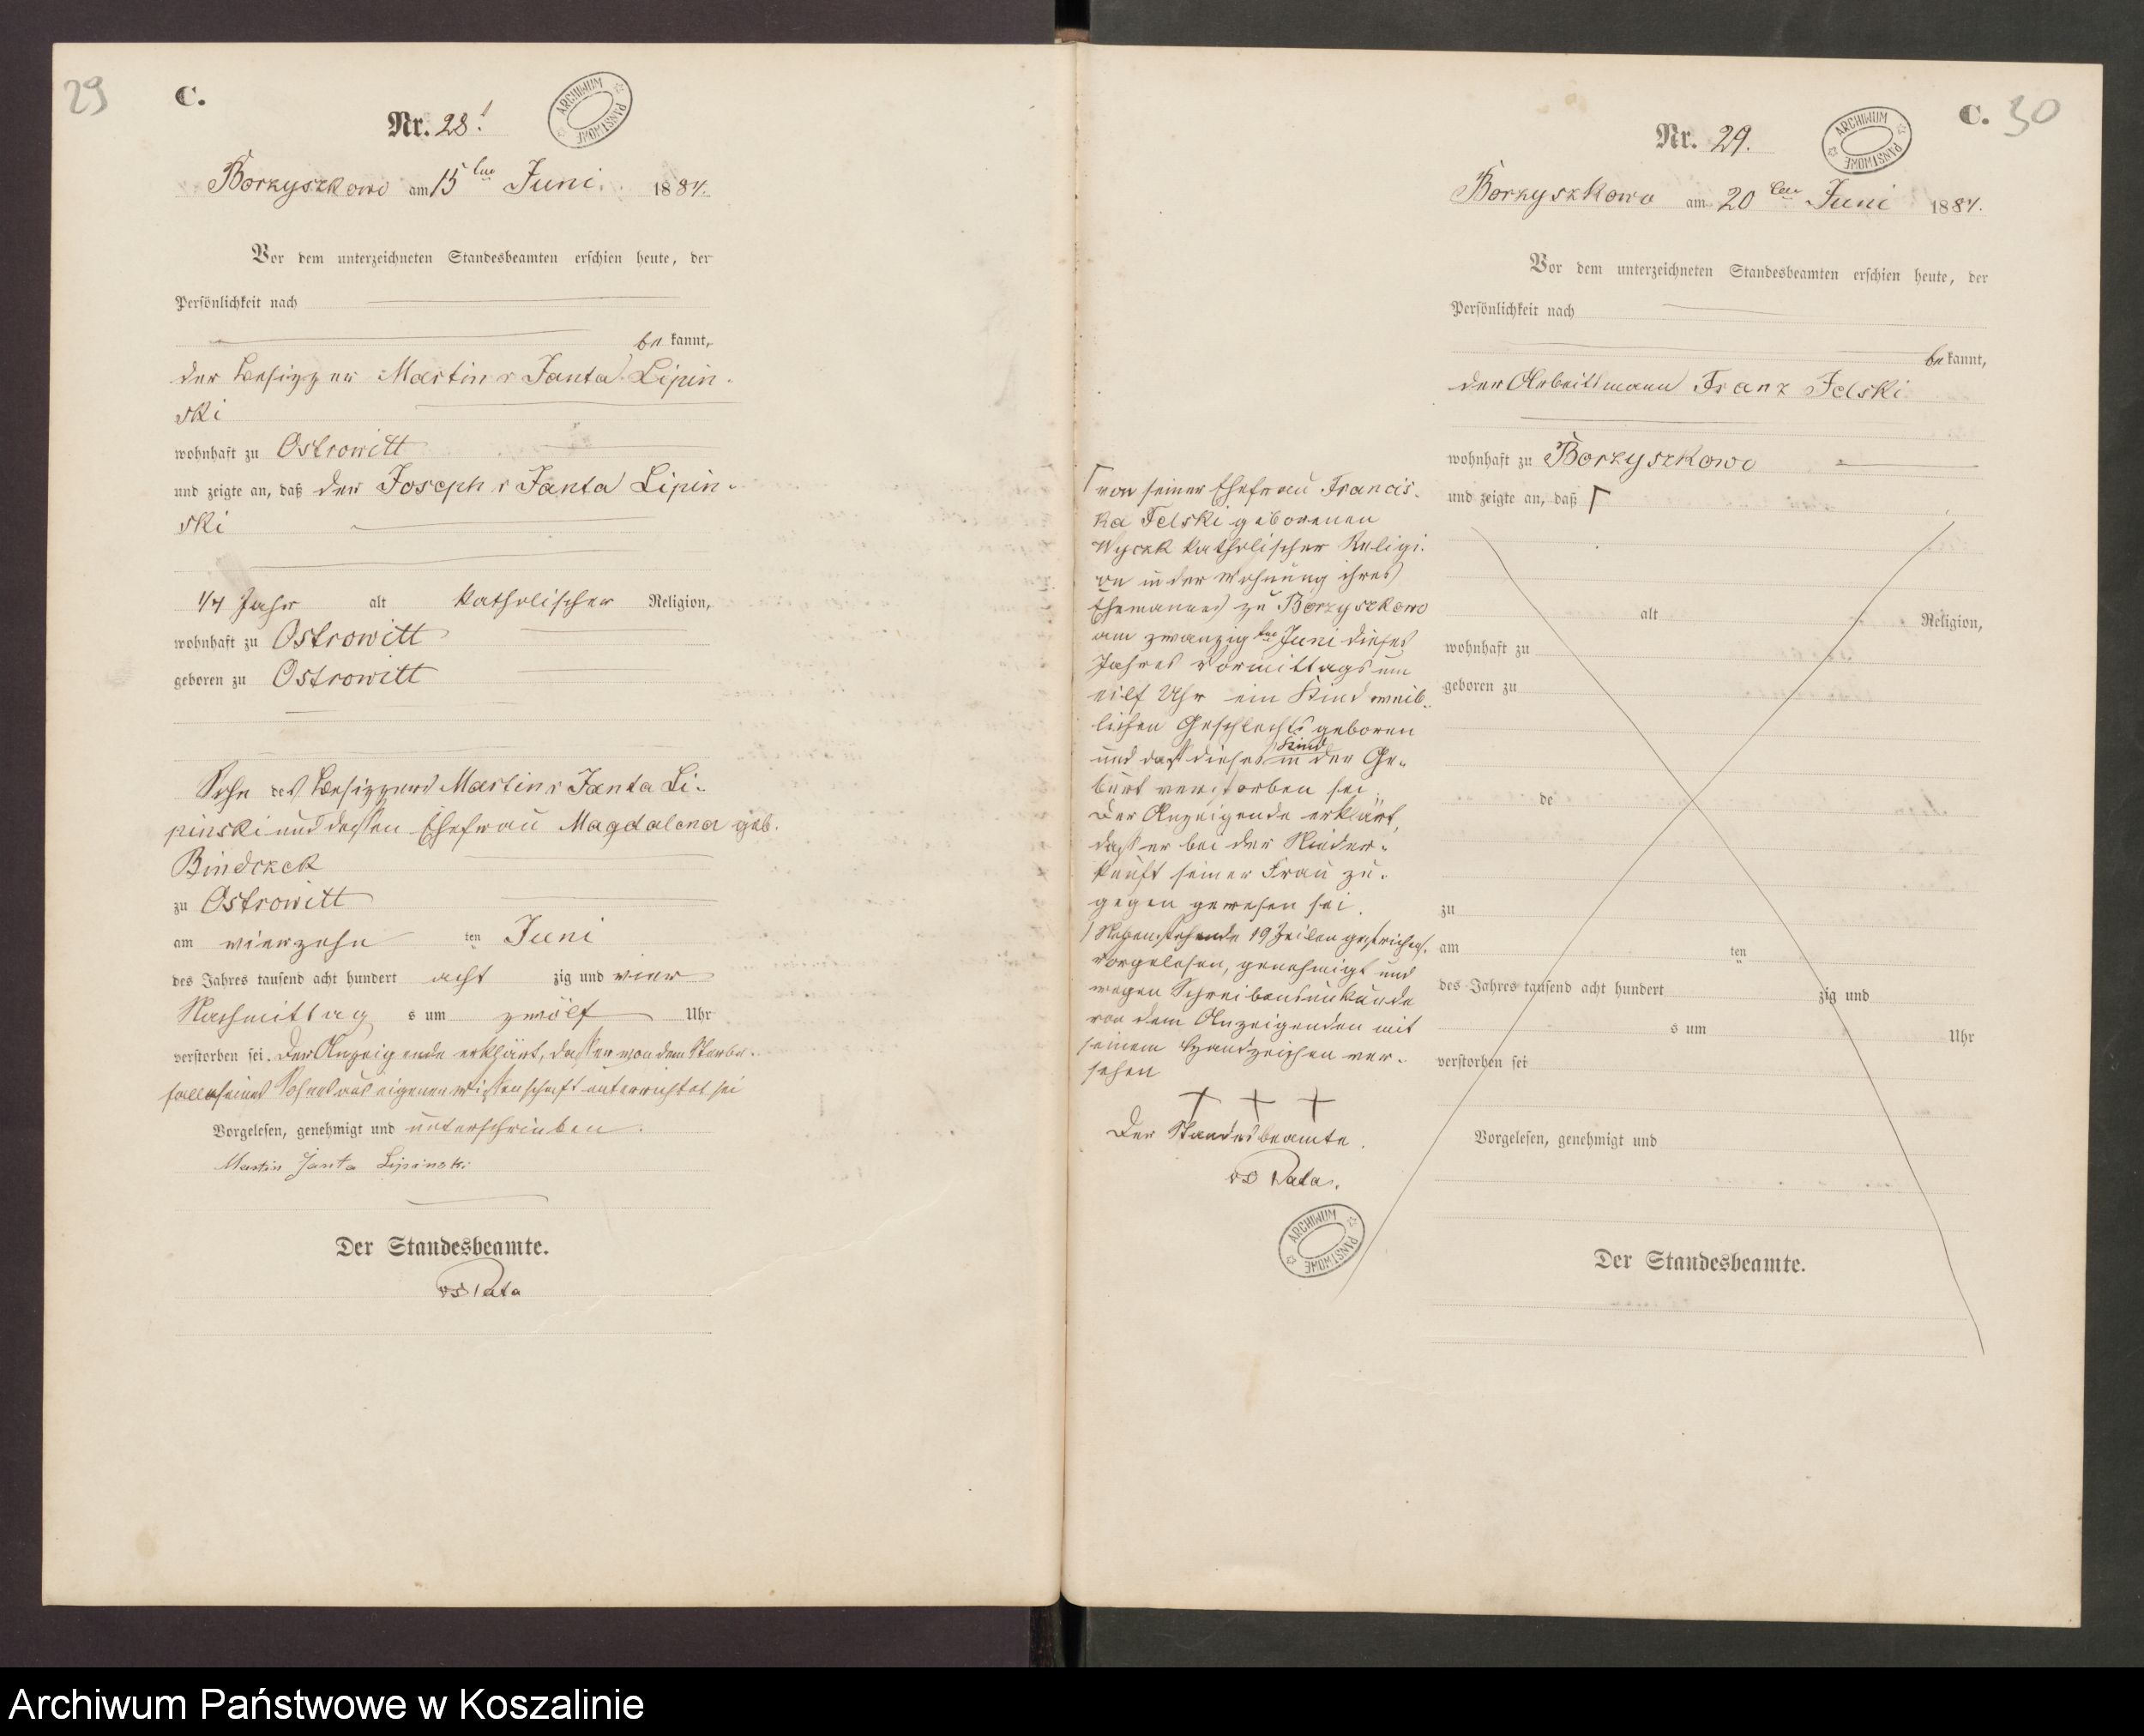 29
C.
Nr. 28.
ARCHIWUM PAŃSTWOWE
Borzyszkowo am 15 ten Juni 1884.
Vor dem unterzeichneten Standesbeamten erschien heute, der
Persönlichkeit nach
be kannt,
der Besitzer Martin v Janta Lipin-
ski
wohnhaft zu Ostrowitt
und zeigte an, daß der Joseph v Janta Lipin-
ski
1/4 Jahr alt katholischer Religion,
wohnhaft zu Ostrowitt
geboren zu Ostrowitt
Sohn des Besitzers Martin v Janta Li-
pinski und dessen Ehefrau Magdalena geb.
Bindczek
zu Ostrowitt
am vierzehn ten Juni
des Jahres tausend acht hundert acht zig und vier
Nachmittag s um zwölf Uhr
verstorben sei. Der Anzeigende erklärt, dass er von dem Sterbe-
falle seines Sohnes aus eigener Wissenschaft unterrichtet sei
Vorgelesen, genehmigt und unterschrieben.
Martin Janta Lipinski
Der Standesbeamte.
C. 30
Nr. 29.
ARCHIWUM PAŃSTWOWE
Borzyszkowo am 20 ten Juni 1884.
Vor dem unterzeichneten Standesbeamten erschien heute, der
Persönlichkeit nach
be kannt,
der Arbeitsmann Franz Felski
wohnhaft zu Borzyszkowo
und zeigte an, daß Γ
Γ von seiner Ehefrau Francis-
ka Felski geborenen
katholischer Religi-
on in der Wohnung ihres
Ehemannes zu Borzyszkowo
am zwanzig ten Juni dieses
Jahres Vormittags um
eilf Uhr ein Kind weib-
lichen Geschlechts geboren
und dass dieses Kind in der Ge-
burt verstorben sei.
Der Anzeigende erklärt,
dass er bei der Nieder-
kunft seiner Frau zu-
gegen gewesen sei.
Nebenstehende 19 Zeilen gestrichen.
Vorgelesen, genehmigt und
wegen Schreibensunkunde
von dem Anzeigenden mit
seinem Handzeichen ver-
sehen
+ + +
Der Standesbeamte.
ARCHIWUM PAŃSTWOWE
alt Religion,
wohnhaft zu
geboren zu
de
zu
am ten
des Jahres tausend acht hundert zig und
s um Uhr
verstorben sei
Vorgelesen, genehmigt und
Der Standesbeamte.
Archiwum Państwowe w Koszalinie